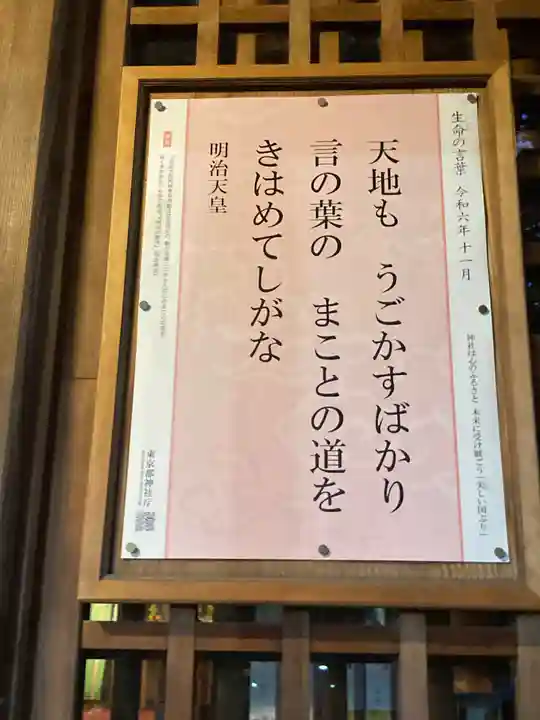 生命の言葉　令和六年十一月
神社は心のふるさと　未来に受け継ごう「美しい国ぶり」
天地も　うごかすばかり
言の葉の　まことの道を
きはめてしがな
明治天皇
東京都神社庁